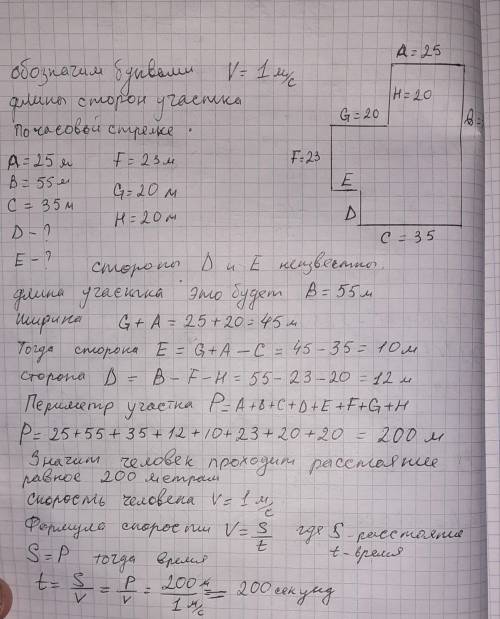 обозначим буквами V = 1 м/с
длины сторон участка
по часовой стрелке.
A = 25 м F = 23 м
B = 55 м G = 20 м
C = 35 м H = 20 м
D - ?
E - ?
A = 25
H = 20
G = 20
B =
F = 23
E
D
C = 35
стороны D и E неизвестны,
длина участка это будет B = 55 м
ширина G + A = 25 + 20 = 45 м
Тогда сторона E = G + A - C = 45 - 35 = 10 м
сторона D = B - F - H = 55 - 23 - 20 = 12 м
Периметр участка P = A + B + C + D + E + F + G + H
P = 25 + 55 + 35 + 12 + 10 + 23 + 20 + 20 = 200 м
Значит человек проходит расстояние
равное 200 метрам
скорость человека V = 1 м/с
Формула скорости V = S/t где S - расстояние
t - время
S = P тогда время
t = S/V = P/V = 200 м / 1 м/с = 200 секунд